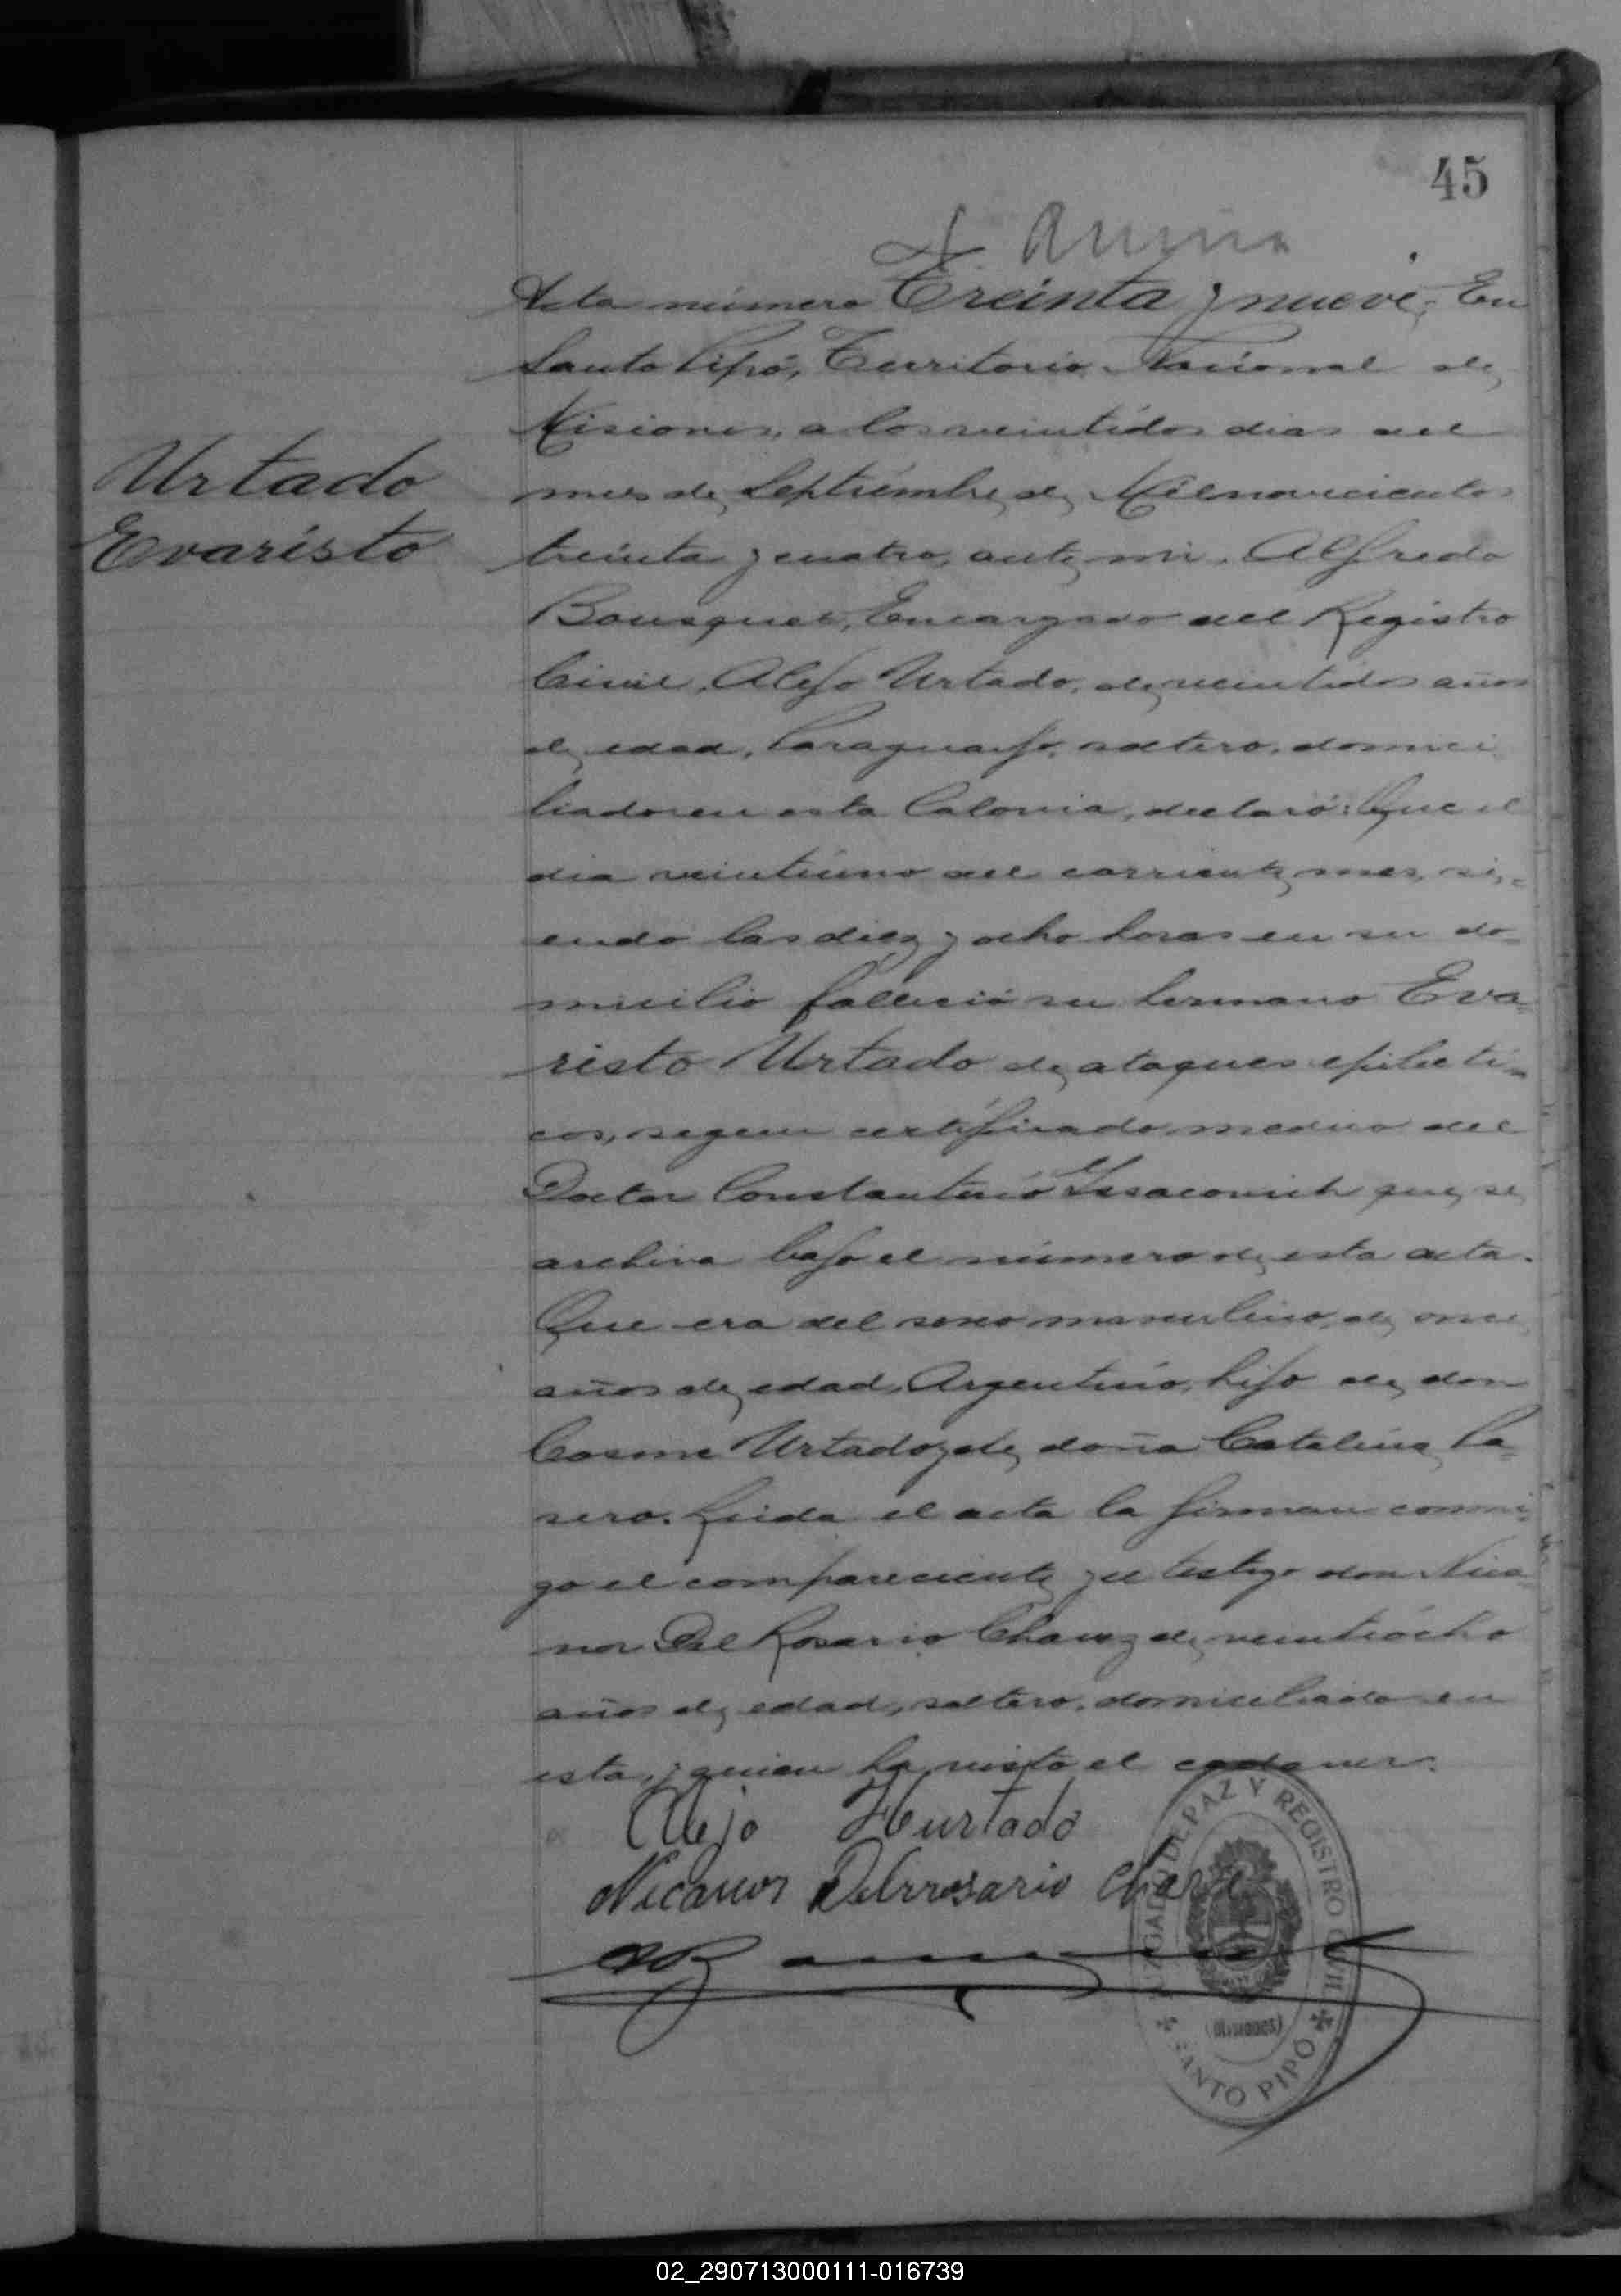 45
Acta número Treinta y nueve. En
Santo Pipó, Territorio Nacional de
Misiones, a los veintidos dias del
mes de Septiembre de Milnovecientos
Urtado
Evaristo
treinta y cuatro, ante mi, Alfredo
Bousquet, Encargado del Registro
Civil, Alejo Urtado, de veintidos años
de edad, Paraguayo, soltero, domici-
liado en esta Colonia, declaró: Que el
dia veintiuno del corriente mes, si-
endo las diez y ocho horas en su do-
micilio falleció su hermano Eva-
risto Urtado de ataques epilecti-
cos, segun certificado medico del
Doctor Constantino Issacovich que se
archiva bajo el número de esta acta.
Que era del sexo masculino, de once
años de edad, Argentino, hijo de don
Cosme Urtado y de doña Catalina
sero. Leida el acta la firman conmi-
go el compareciente y el testigo don Nica-
nor Del Rosario Chavez de veintiócho
años de edad, soltero, domiciliado en
esta, quien ha visto el cadaver.
Alejo Hurtado
Nicanor Delrrosario Chave
JUZGADO DE PAZ Y REGISTRO CIVIL
(MISIONES)
SANTO PIPÓ
02_290713000111-016739